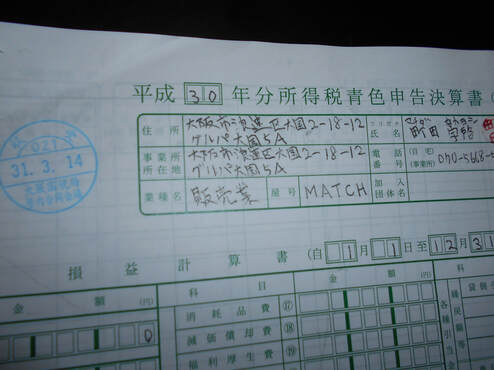 平成 30 年分所得税青色申告決算書(
住所 大阪市浪速区大国2-18-12
グルパ大国5A
フリガナ
氏名 町田
事業所所在地 大阪市浪速区大国2-18-12
グルパ大国5A
電話番号 (自宅)
(事業所) 090-5668-5
業種名 販売業 屋号 MATCH 加入団体名
31.3.14
損益計算書 (自 1 月 1 日至 12 月 31
金額 (円) 科目 金額 (円)
0 消耗品費 ⑰
減価償却費 ⑱
福利厚生費 ⑲